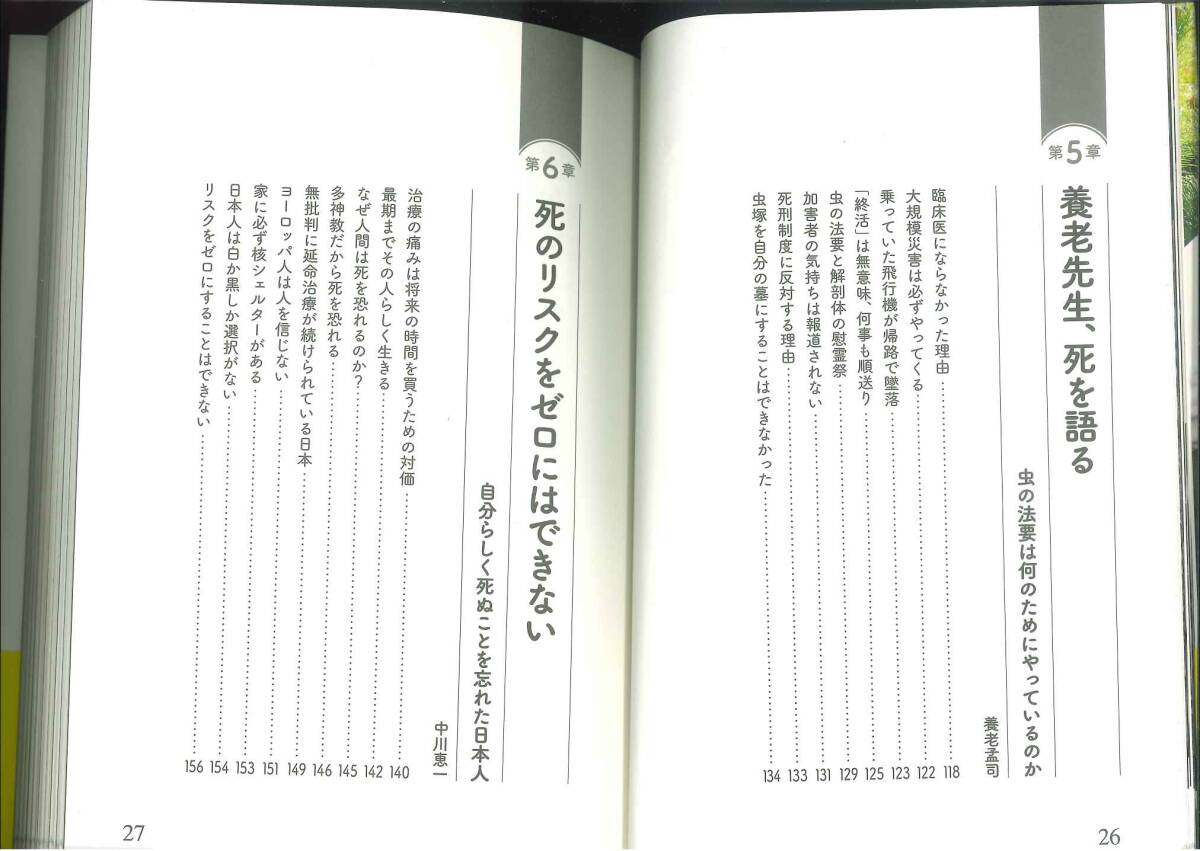 第5章
養老先生、死を語る
虫の法要は何のためにやっているのか
養老孟司
臨床医にならなかった理由 118
大規模災害は必ずやってくる 122
乗っていた飛行機が帰路で墜落 123
「終活」は無意味、何事も順送り 125
虫の法要と解剖体の慰霊祭 129
加害者の気持ちは報道されない 131
死刑制度に反対する理由 133
虫塚を自分の墓にすることはできなかった 134
26
第6章
死のリスクをゼロにはできない
自分らしく死ぬことを忘れた日本人
中川恵一
治療の痛みは将来の時間を買うための対価 140
最期までその人らしく生きる 142
なぜ人間は死を恐れるのか? 145
多神教だから死を恐れる 146
無批判に延命治療が続けられている日本 149
ヨーロッパ人は人を信じない 151
家に必ず核シェルターがある 153
日本人は白か黒しか選択がない 154
リスクをゼロにすることはできない 156
27